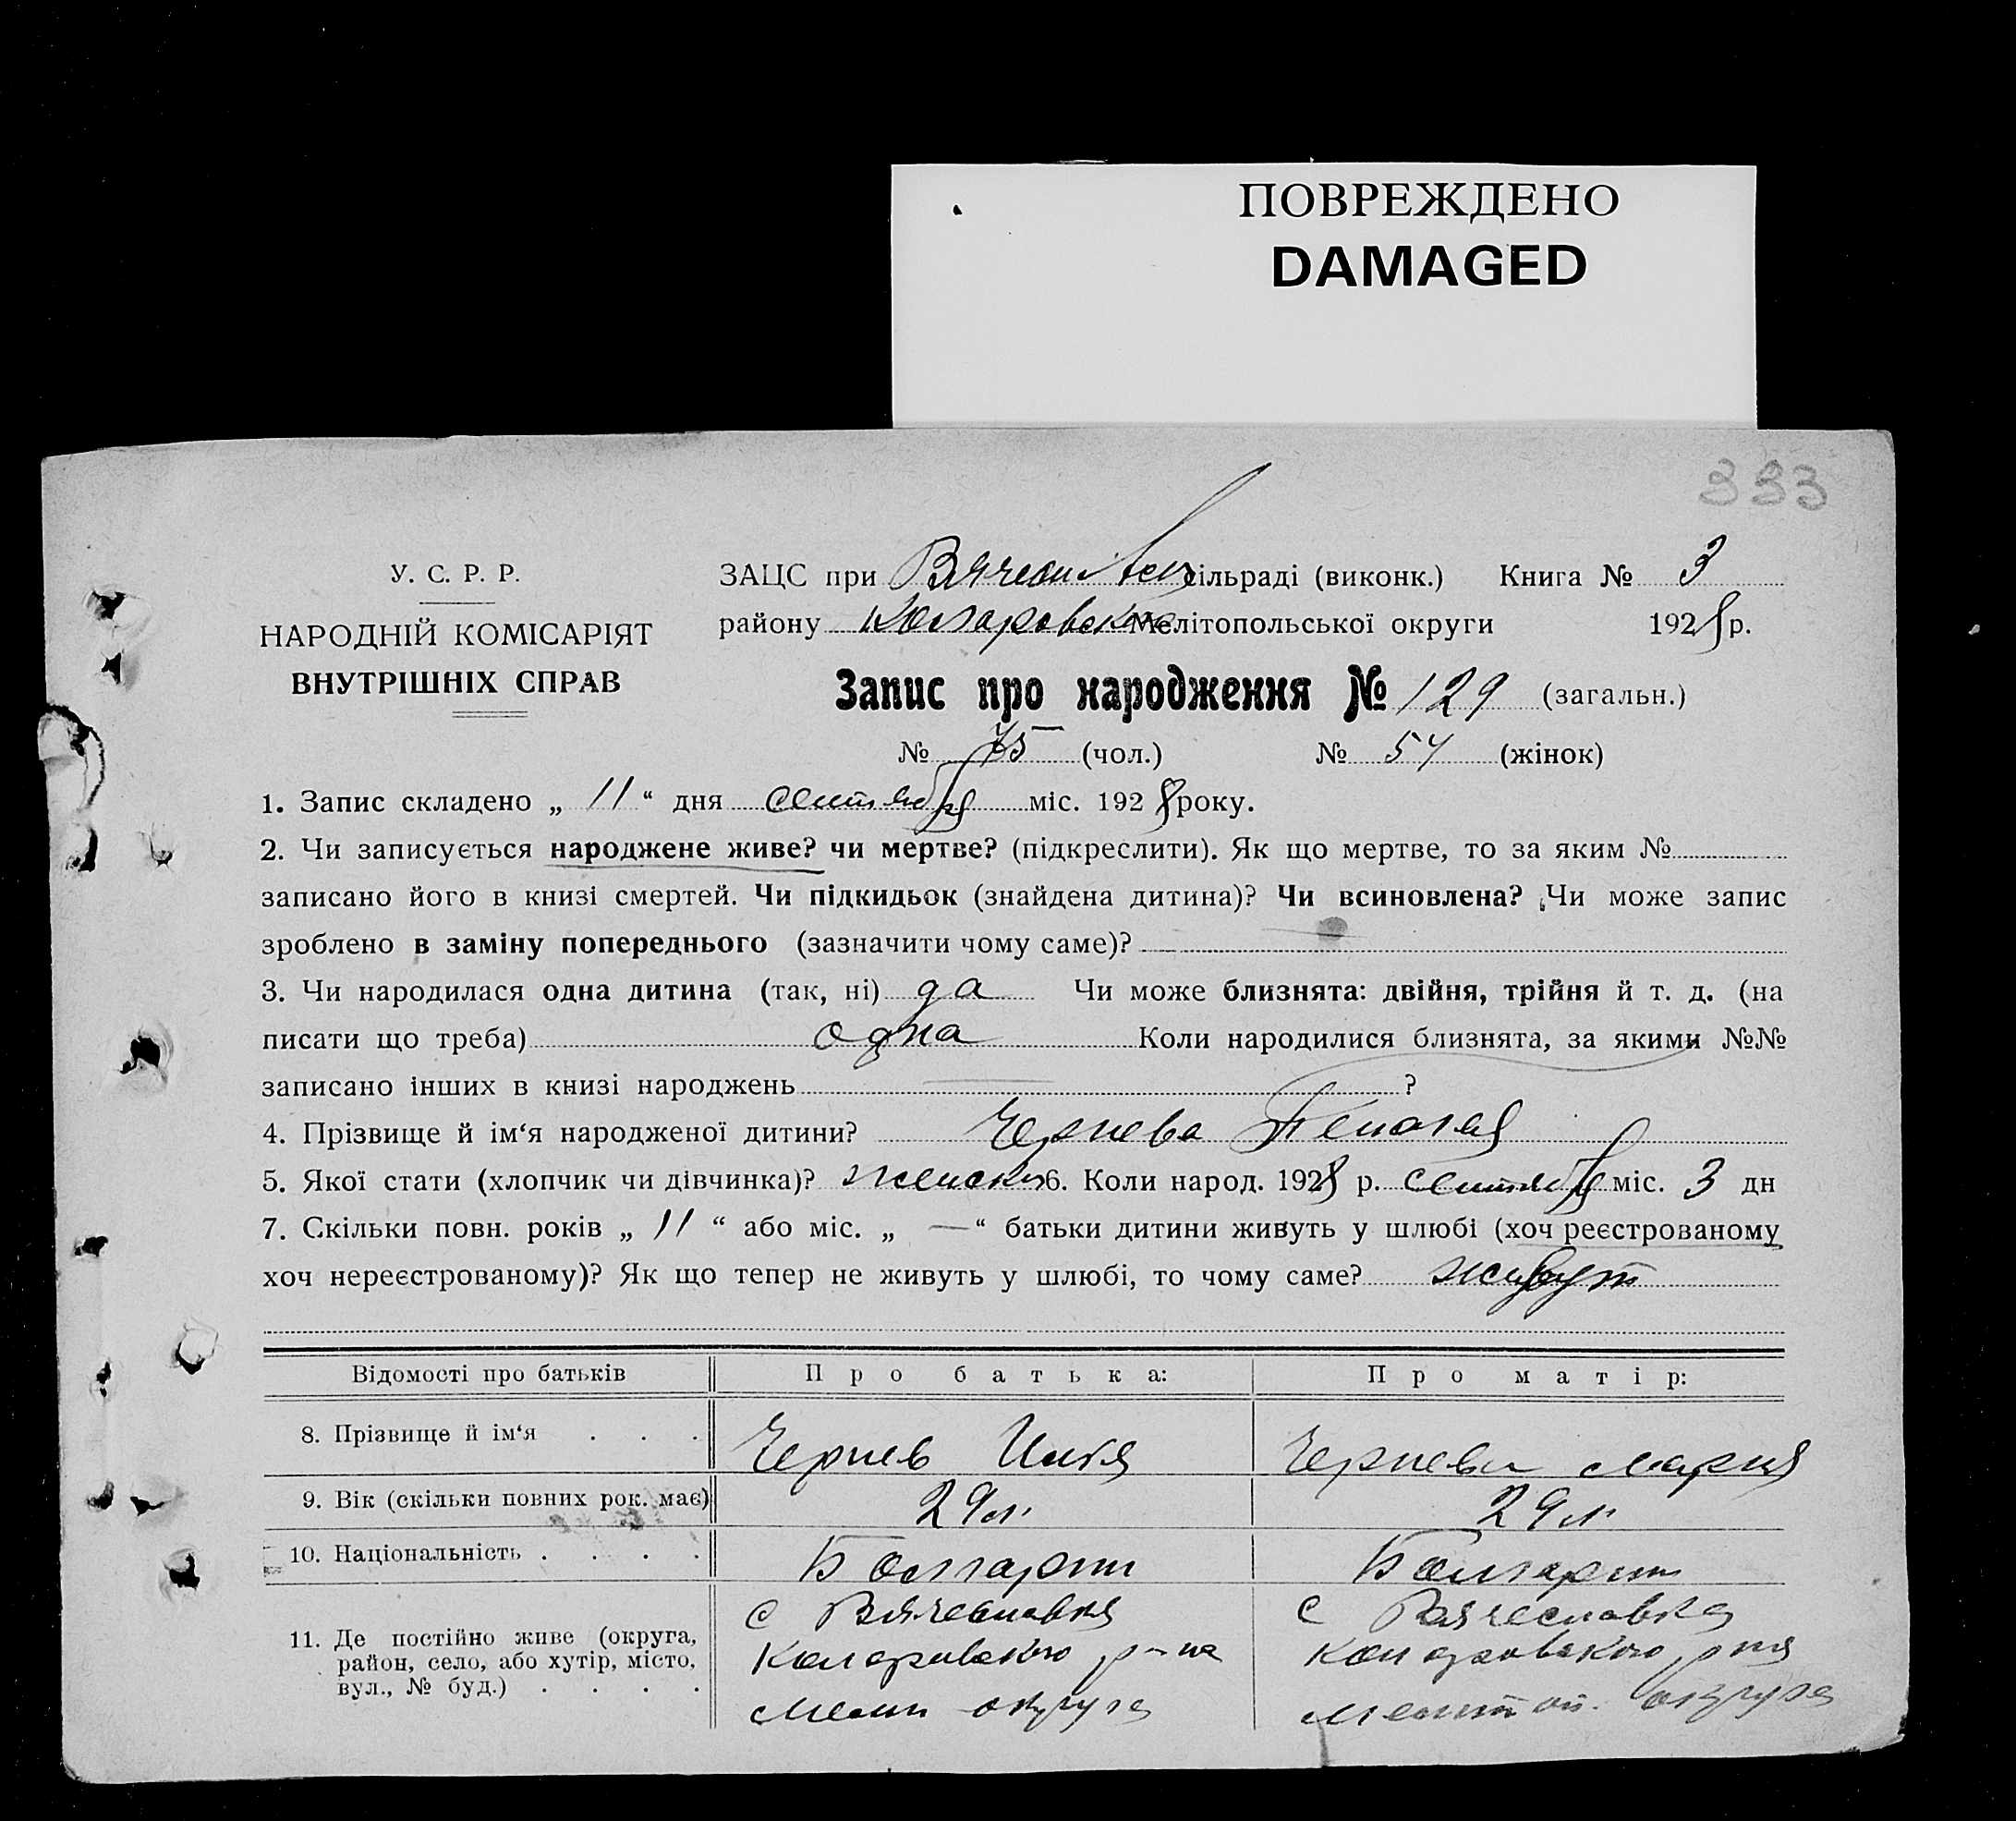 ПОВРЕЖДЕНО
DAMAGED
333
У. С. Р. Р.
НАРОДНІЙ КОМІСАРІЯТ
ВНУТРІШНІХ СПРАВ
ЗАЦС при Вячеславск сільраді (виконк.) Книга № 3
району Коларовского Мелітопольської округи 1928 р.
Запис про народження № 129 (загальн.)
№ 75 (чол.) № 54 (жінок)
1. Запис складено „ 11 “ дня сентября міс. 1928 року.
2. Чи записується народжене живе? чи мертве? (підкреслити). Як що мертве, то за яким №
записано його в книзі смертей. Чи підкидьок (знайдена дитина)? Чи всиновлена? Чи може запис
зроблено в заміну попереднього (зазначити чому саме)?
3. Чи народилася одна дитина (так, ні) да Чи може близнята: двійня, трійня й т. д. (на
писати що треба) одна Коли народилися близнята, за якими №№
записано інших в книзі народжень ?
4. Прізвище й ім‘я народженої дитини? Чернева Пелагея
5. Якої стати (хлопчик чи дівчинка)? женский 6. Коли народ. 1928 р. сентября міс. 3 дн
7. Скільки повн. років „ 11 “ або міс. „ — “ батьки дитини живуть у шлюбі (хоч реєстрованому
хоч нереєстрованому)? Як що тепер не живуть у шлюбі, то чому саме? живут
Відомості про батьків Про батька: Про матір:
8. Прізвище й ім‘я . . . Чернев Илья Чернева Мария
9. Вік (скільки повних рок. має) 29 л. 29 л.
10. Національність . . . . Болгарин Болгарин
11. Де постійно живе (округа, район, село, або хутір, місто, вул., № буд.) . . . .
с Вячеславка
Коларовского р-на
Мелит округа
с Вячеславка
Коларовского рна
Мелитоп. округа